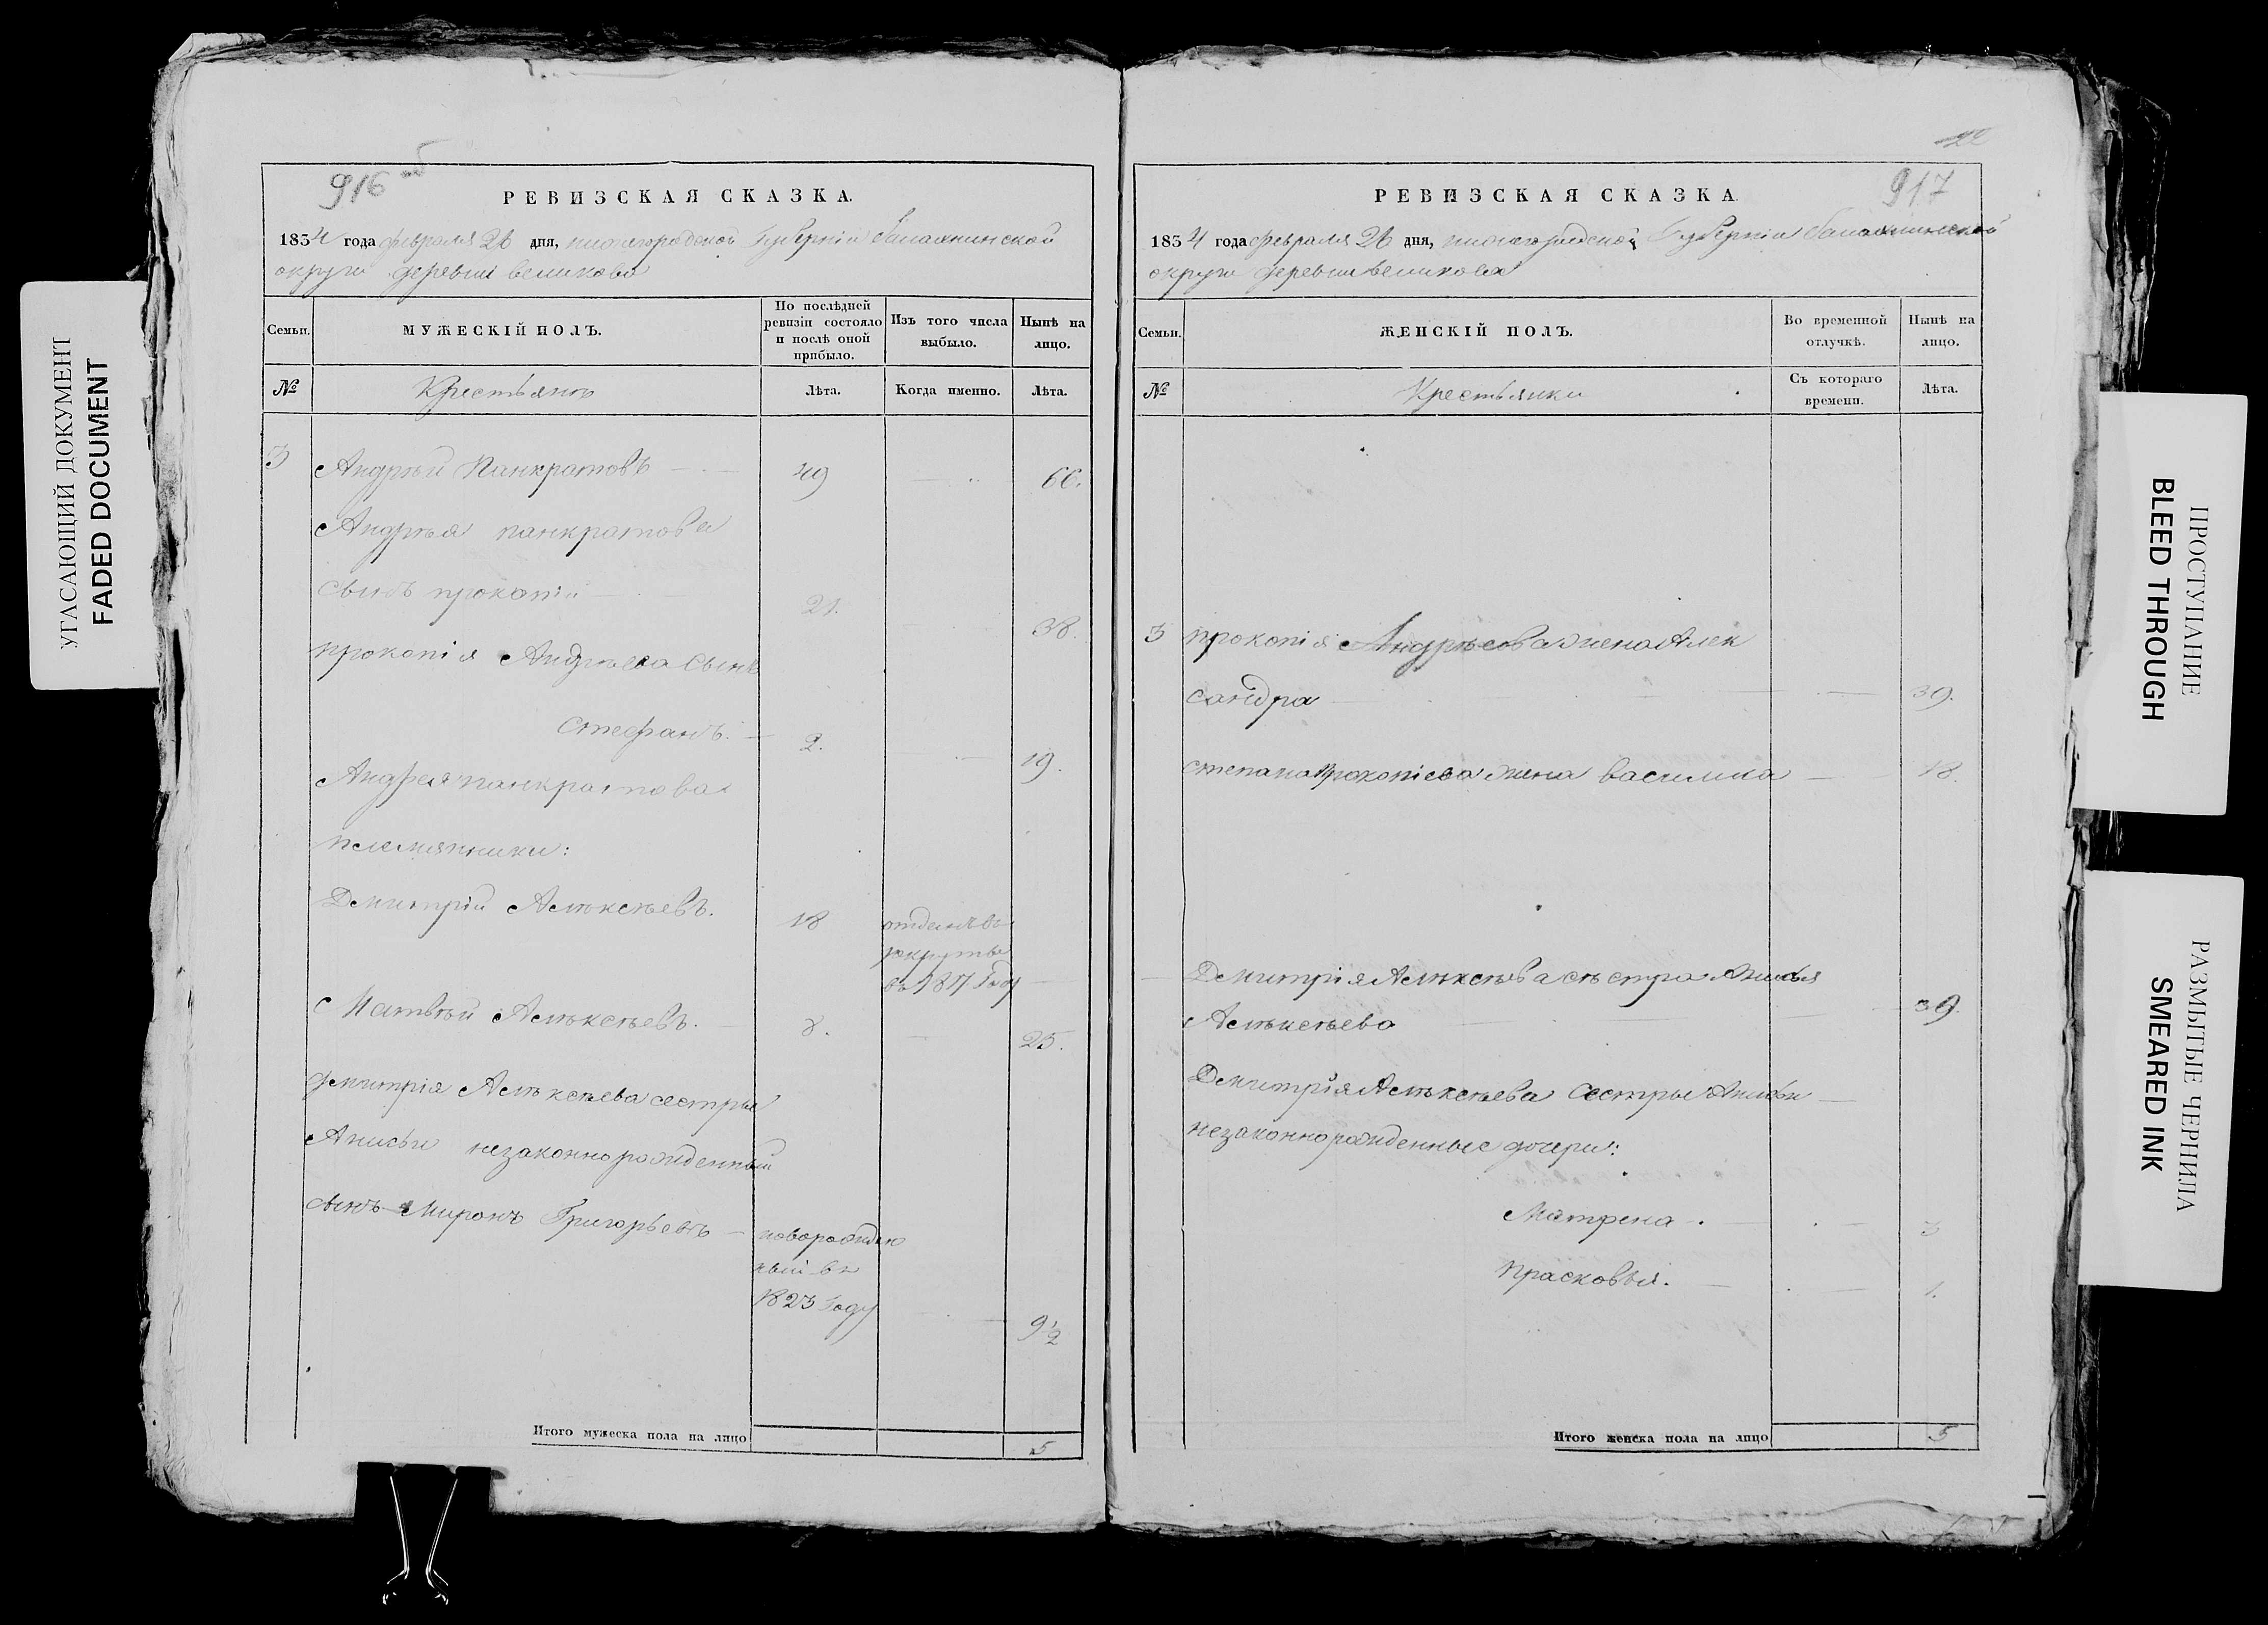 УГАСАЮЩИЙ ДОКУМЕНТ
FADED DOCUMENT
916 об
РЕВИЗСКАЯ СКАЗКА.
1834 года февраля 26 дня, нижегородской Губерніи балахнинской
округи деревни великова
Семьи.
МУЖЕСКІЙ ПОЛЪ.
По послѣдней ревизіи состояло и послѣ оной прибыло.
Изъ того числа выбыло.
Нынѣ на лицо.
№
Крестьянъ
Лѣта.
Когда именно.
Лѣта.
3 Андрѣй Панкратовъ — 49 — 66.
Андрѣя панкратова
сынъ прокопій — 21. 38.
прокопія Андрѣева сынъ
Стефанъ. — 2. — 19.
Андрея панкратова
племянники:
Дмитрій Алѣксѣевъ. 18 отданъ въ
рекруты
въ 1817 Году —
Матвѣй Алѣксѣевъ. — 8. — 25.
Дмитрія Алѣксѣева сестры
Анисьи незаконнорожденный
сынъ Миронъ Григорьевъ — новорожден
ный въ
1823 Году — 9 1/2
Итого мужеска пола на лицо 5
917
РЕВИЗСКАЯ СКАЗКА.
1834 года февраля 26 дня, нижегородской Губерніи балахнинской
округи деревни великова
Семьи.
ЖЕНСКІЙ ПОЛЪ.
Во временной отлучкѣ.
Нынѣ на лицо.
№
Крестьянки
Съ котораго времени.
Лѣта.
3 прокопія Андрѣева жена Алек
сандра — 39.
степана Прокопіева жена василиса — 18.
— Дмитрія Алѣксѣева сѣстра Анисья
Алѣксѣева — 39.
Дмитрія Алѣксѣева Сестры Анисьи —
незаконнорожденные дочери:
Матрена. — 3
Прасковья. — 1.
Итого женска пола на лицо 5
ПРОСТУПАНИЕ
BLEED THROUGH
РАЗМЫТЫЕ ЧЕРНИЛА
SMEARED INK